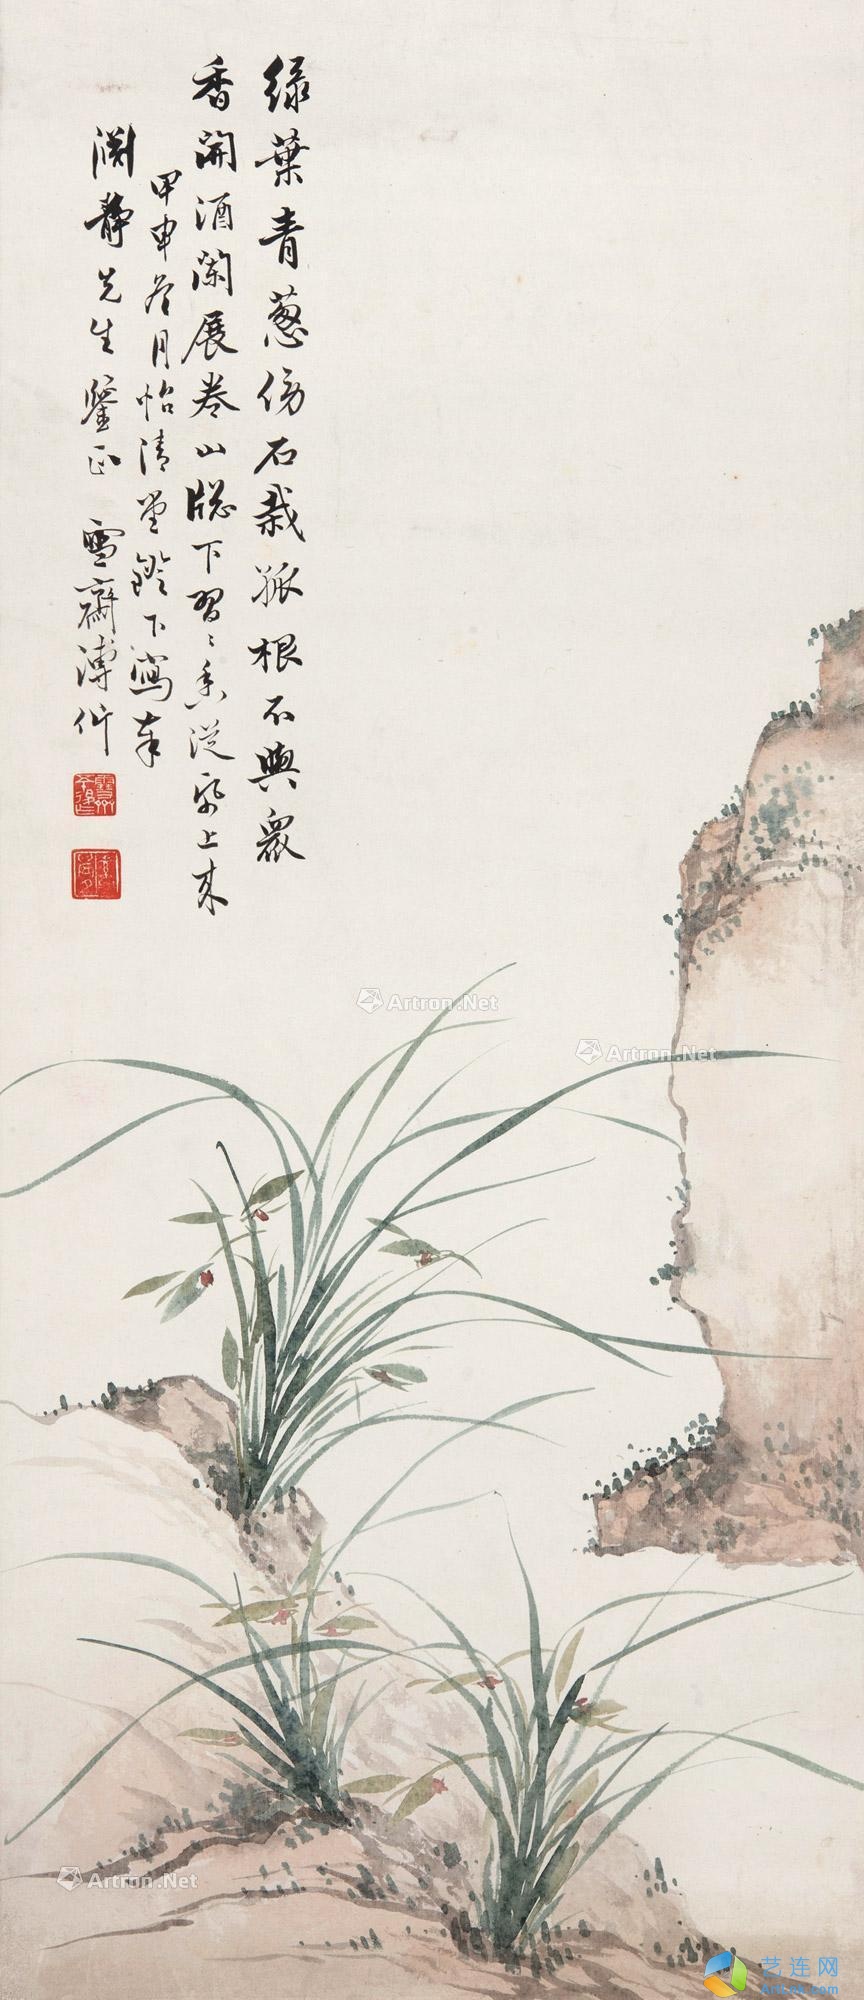 綠葉青蔥傍石栽孤根不與衆
香開酒闌展卷山牕下習〻香從紙上來
甲申冬月怡清堂鐙下寫奉
淵靜先生鑒正 雪齋溥伒
Artron.Net
Artron.Net
Artron.Net
艺连网
Artlink.com